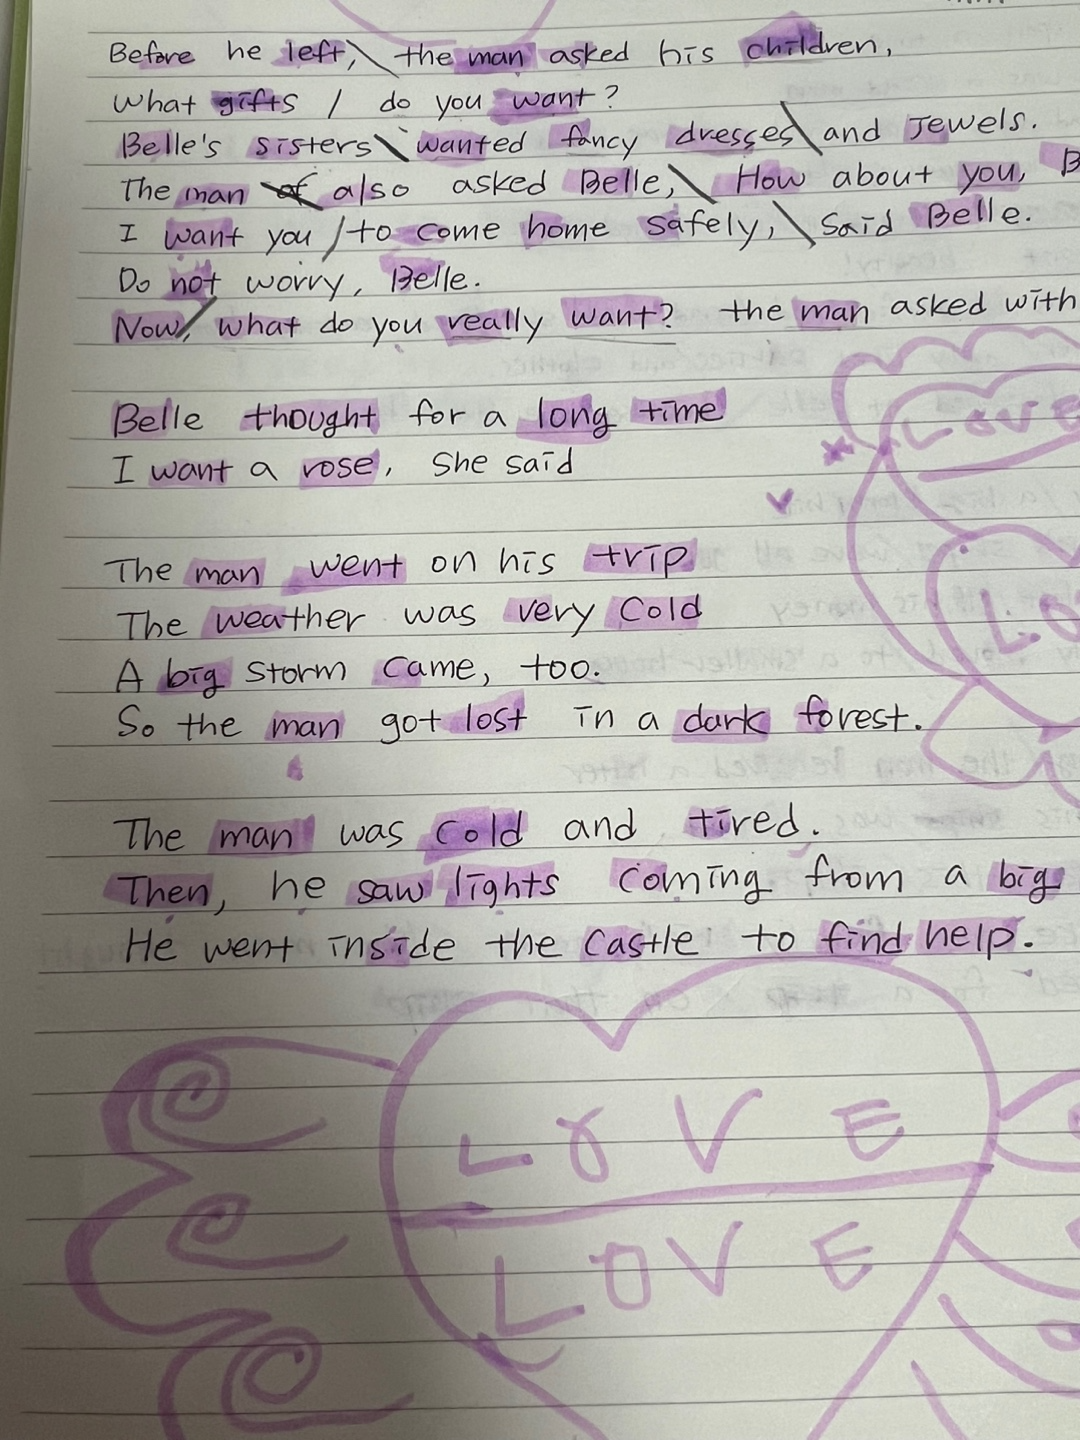 Before he left, \ the man asked his children,
What gifts / do you want?
Belle's sisters \ wanted fancy dresses \ and Jewels.
The man of also asked Belle, \ How about you, B
I want you / to come home safely, \ Said Belle.
Do not worry, Belle.
Now, / what do you really want? the man asked with
Belle thought for a long time
I want a rose, She said
The man went on his trip
The weather was very Cold
A big Storm Came, too.
So the man got lost in a dark forest.
The man was Cold and tired.
Then, he saw lights Coming from a big
He went inside the Castle to find help.
LOVE
LO
LOVE
LOVE